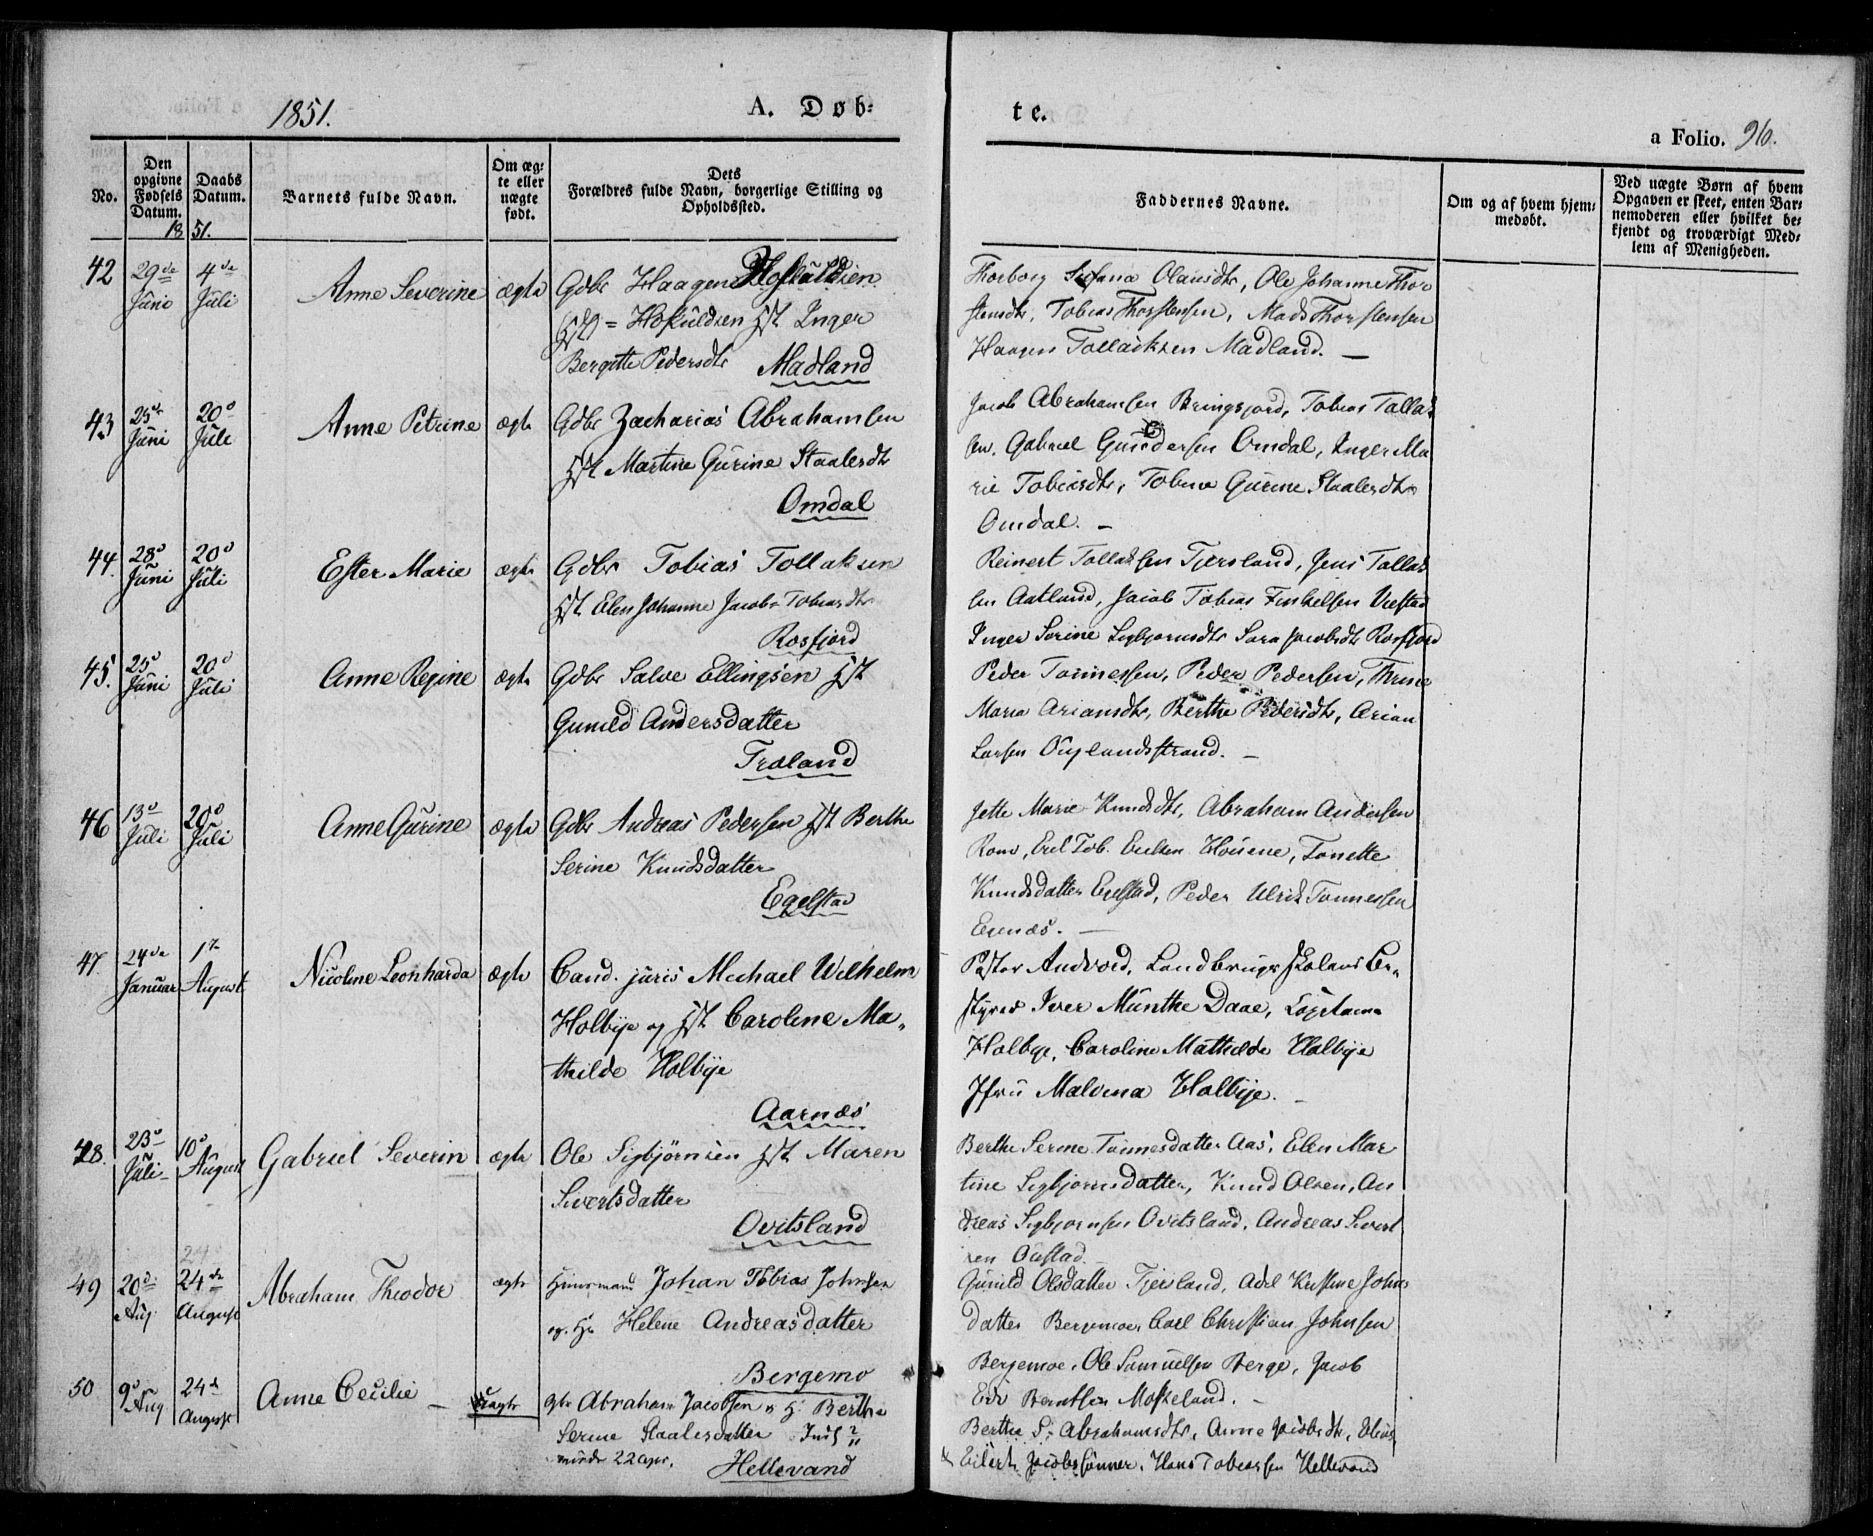 1851.
A. Døb-
te.
a Folio. 96.
No.
Den opgivne Fødsels Datum.
Daabs Datum.
18 51.
Barnets fulde Navn.
Om ægte eller uægte født.
Dets
Forældres fulde Navn, borgerlige Stilling og
Opholdssted.
Faddernes Navne.
Om og af hvem hjem-
medøbt.
Ved uægte Børn af hvem
Opgaven er skeet, enten Bar-
nemoderen eller hvilket be-
kjendt og troværdigt Med-
lem af Menigheden.
42 29de Juni 4de Juli Anne Severine ægte Gdbr Haagen Hoskuldsen
= Hoskuldsen Hst Inger
Bergitte Pedersdtr Madland
Thorborg Olausdtr, Ole Johanne Thor
stensdtr, Tobias Thorstensen, Mads Thorstensen
Haagen Tollacksen Madland. —
43 25de Juni 20d Jule Anne Petrine ægte Gdbr Zacharias Abrahamsen
Hst Martine Gurine Staalesdtr
Omdal
Jacob Abrahamsen Bringsjord, Tobias Tollak
sen, Gabriel Gundersen Omdal, Inger Ma
rie Tobiasdtr, Tobine Gurine Staalesdtr
Omdal. —
44. 28d Juni 20d Juli Ester Marie ægte Gdbr Tobias Tollaksen
Hst Elen Johanne Jacobe Tobiasdtr
Rosfjord
Reinert Tollaksen Tjersland, Jens Tollak
sen Aatland, Jacob Tobias Vrestad
Inger Serine Sigbjørnsdtr Sara Jacobsdtr Rosfjord
45. 25d Juni 20d Juli Anne Regine ægte Gdbr Salve Ellingsen Hst
Gunild Andersdatter
Træland
Peder Tønnessen, Peder Pedersen, Thrine
Maria Ariansdtr, Berthe Pedersdtr, Arian
Larsen Øylandsstrand. —
46 13d Juli 20d Juli Anne Gurine ægte Gdbr Andreas Pedersen Hst Berthe
Serine Knudsdatter
Egelstad
Jette Marie Knudsdtr, Abraham Andersen
Rom, Tob. Houene, Tonette
Knudsdatter Egelstad, Peder Ulrik Tønnessen
47. 24de Januar 1te August Nicoline Leonharda ægte Cand. juris Michael Wilhelm
Holbye og Hst Caroline Ma-
thilde Holbye
Aarnæs
Pastor Andvord, Landbrugsskolens Be-
styrer Iver Munthe Daae,
Holbye, Caroline Mathilde Holbye
Jfru Malvina Holbye. —
48. 23d Juli 10d August Gabriel Severin ægte Ole Sigbjørnsen Hst Maren
Sivertsdatter
Ovitsland
Berthe Serine Tønnesdatter Aas, Elen Mar
tine Sigbjørnsdatter, Knud Olsen, An
dreas Sigbjørnsen Ovitsland, Andreas Sivert
sen
49 20d Aug 24de August Abraham Theodor ægte Huusmand Johan Tobias Johnsen
og H. Helene Andreasdatter
Bergemo
Gunild Olsdatter Tjersland, Adel Kirstine Johns
datter Bergemoe, Carl Christian Johnsen
Bergemoe, Ole Samuelsen Berge, Jacob
Berntsen Moskeland. —
50 9d Aug 24d August Anne Cecilie — uægte Gbr Abraham Jacobsen og H. Berthe
Serine Staalesdatter
22 Apr. Hellevand
Berthe S. Abrahamsdtr, Anne Jacobsdtr, Elias,
Eilert Jacobssønner, Hans Tobiassen Hellevand